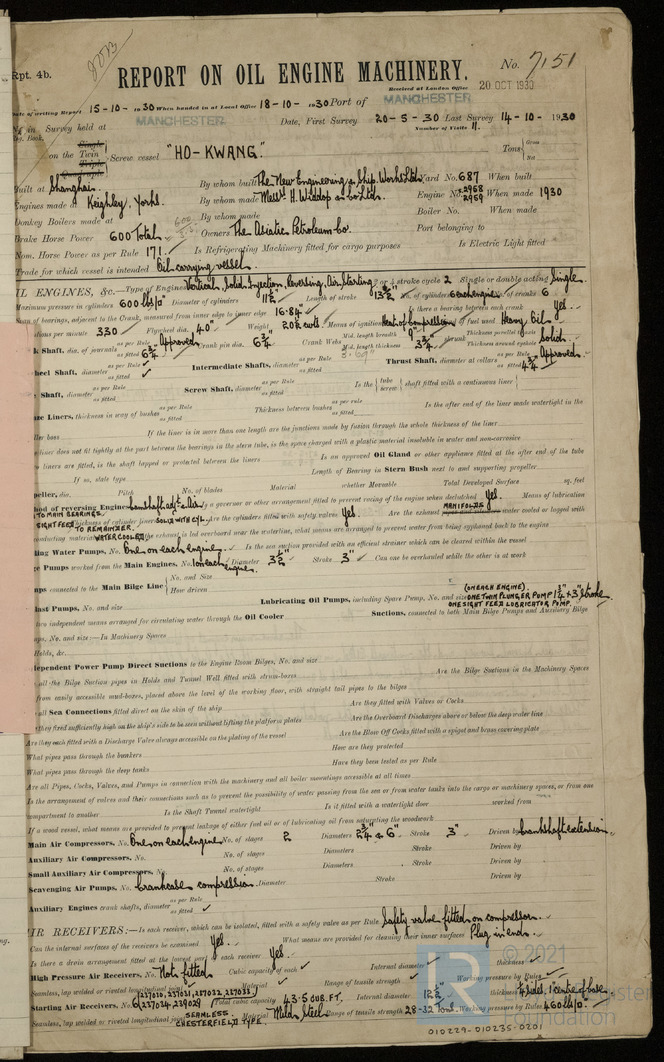 Rpt. 4b.
REPORT ON OIL ENGINE MACHINERY.
No. 7151
Received at London Office
20 OCT 1930
Date of writing Report 15-10-1930 When handed in at Local Office 18-10-1930 Port of MANCHESTER
No. in Survey held at MANCHESTER Date, First Survey 20-5-30 Last Survey 14-10-1930
Reg. Book. Number of Visits 11.
on the Single Twin Triple Screw vessel "HO-KWANG." Tons Gross Net
Built at Shanghai By whom built The New Engineering & Ship. Works Ltd. Yard No. 687 When built
Engines made at Keighley, Yorks. By whom made Messrs H. Widdop & Co Ltd. Engine No. 2958 2959 When made 1930
Donkey Boilers made at By whom made Boiler No. When made
Brake Horse Power 600 Total. Owners The Asiatic Petroleum Co. Port belonging to
Nom. Horse Power as per Rule 171. Is Refrigerating Machinery fitted for cargo purposes Is Electric Light fitted
Trade for which vessel is intended Oil carrying vessel.
OIL ENGINES, &c.—Type of Engines Vertical, Solid Injection, Reversing, Air Starting 2 or 4 stroke cycle 2 Single or double acting Single.
Maximum pressure in cylinders 600 lbs/□" Diameter of cylinders 11½" Length of stroke 13½" No. of cylinders 6 each engine No. of cranks 6
Span of bearings, adjacent to the Crank, measured from inner edge to inner edge 16·84" Is there a bearing between each crank Yes.
Revolutions per minute 330 Flywheel dia. 40" Weight 20½ cwts Means of ignition Heat of Compression Kind of fuel used Heavy Oil
Crank Shaft, dia. of journals as per Rule Approved as fitted 6¾" Crank pin dia. 6¾" Crank Webs Mid. length breadth 9" Mid. length thickness 3¾" shrunk Thickness parallel to axis Solid. Thickness around eyehole
Wheel Shaft, diameter as per Rule as fitted Intermediate Shafts, diameter as per Rule as fitted Thrust Shaft, diameter at collars as per Rule Approved. as fitted 4¾"
Shaft, diameter as per Rule as fitted Screw Shaft, diameter as per Rule as fitted Is the tube screw shaft fitted with a continuous liner
Liners, thickness in way of bushes as per Rule as fitted Thickness between bushes as per rule as fitted Is the after end of the liner made watertight in the
boss If the liner is in more than one length are the junctions made by fusion through the whole thickness of the liner
liner does not fit tightly at the part between the bearings in the stern tube, is the space charged with a plastic material insoluble in water and non-corrosive
liners are fitted, is the shaft lapped or protected between the liners Is an approved Oil Gland or other appliance fitted at the after end of the tube
If so, state type Length of Bearing in Stern Bush next to and supporting propeller
Propeller, dia. Pitch No. of blades Material whether Moveable Total Developed Surface sq. feet
Method of reversing Engines Camshaft adjt. & Air Is a governor or other arrangement fitted to prevent racing of the engine when declutched Yes. Means of lubrication
TO MAIN BEARINGS. SIGHT FEED TO REMAINDER. Thickness of cylinder liners SOLID WITH CYL. Are the cylinders fitted with safety valves Yes. Are the exhaust MANIFOLDS water cooled or lagged with
conducting material WATER COOLED If the exhaust is led overboard near the waterline, what means are arranged to prevent water being syphoned back to the engine
Cooling Water Pumps, No. One on each engine. Is the sea suction provided with an efficient strainer which can be cleared within the vessel
Bilge Pumps worked from the Main Engines, No. 1 on each engine. Diameter 3½" Stroke 3" Can one be overhauled while the other is at work
Pumps connected to the Main Bilge Line No. and Size How driven
Ballast Pumps, No. and size Lubricating Oil Pumps, including Spare Pump, No. and size (ON EACH ENGINE). ONE TWIN PLUNGER PUMP 1¼" × 3" Stroke. ONE SIGHT FEED LUBRICATOR PUMP.
two independent means arranged for circulating water through the Oil Cooler Suctions, connected to both Main Bilge Pumps and Auxiliary Bilge
Pumps, No. and size:—In Machinery Spaces
Holds, &c.
Independent Power Pump Direct Suctions to the Engine Room Bilges, No. and size
all the Bilge Suction pipes in Holds and Tunnel Well fitted with strum-boxes Are the Bilge Suctions in the Machinery Spaces
from easily accessible mud-boxes, placed above the level of the working floor, with straight tail pipes to the bilges
all Sea Connections fitted direct on the skin of the ship Are they fitted with Valves or Cocks
they fixed sufficiently high on the ship's side to be seen without lifting the platform plates Are the Overboard Discharges above or below the deep water line
Are they each fitted with a Discharge Valve always accessible on the plating of the vessel Are the Blow Off Cocks fitted with a spigot and brass covering plate
What pipes pass through the bunkers How are they protected
What pipes pass through the deep tanks Have they been tested as per Rule
Are all Pipes, Cocks, Valves, and Pumps in connection with the machinery and all boiler mountings accessible at all times
Is the arrangement of valves and their connections such as to prevent the possibility of water passing from the sea or from water tanks into the cargo or machinery spaces, or from one
compartment to another Is the Shaft Tunnel watertight Is it fitted with a watertight door worked from
If a wood vessel, what means are provided to prevent leakage of either fuel oil or of lubricating oil from saturating the woodwork
Main Air Compressors, No. One on each engine No. of stages 2 Diameters 2¾" & 6" Stroke 3" Driven by Crankshaft extension.
Auxiliary Air Compressors, No. No. of stages Diameters Stroke Driven by
Small Auxiliary Air Compressors, No. No. of stages Diameters Stroke Driven by
Scavenging Air Pumps, No. Crankcase compression. Diameter Stroke Driven by
Auxiliary Engines crank shafts, diameter as per Rule as fitted
AIR RECEIVERS:—Is each receiver, which can be isolated, fitted with a safety valve as per Rule Safety valve fitted on compressor.
Can the internal surfaces of the receivers be examined Yes. What means are provided for cleaning their inner surfaces Plug in ends.
Is there a drain arrangement fitted at the lowest part of each receiver Yes.
High Pressure Air Receivers, No. Not fitted Cubic capacity of each Internal diameter thickness
Seamless, lap welded or riveted longitudinal joint Range of tensile strength Working pressure by Rules
Starting Air Receivers, No. 6 Total cubic capacity 43·5 CUB. FT. Internal diameter thickness
Seamless, lap welded or riveted longitudinal joint SEAMLESS. CHESTERFIELD TYPE. Material Mild Steel Range of tensile strength 28-32 Tons. Working pressure by Rules 460 lbs/□"
010229-010235-0201
© 2021
Foundation